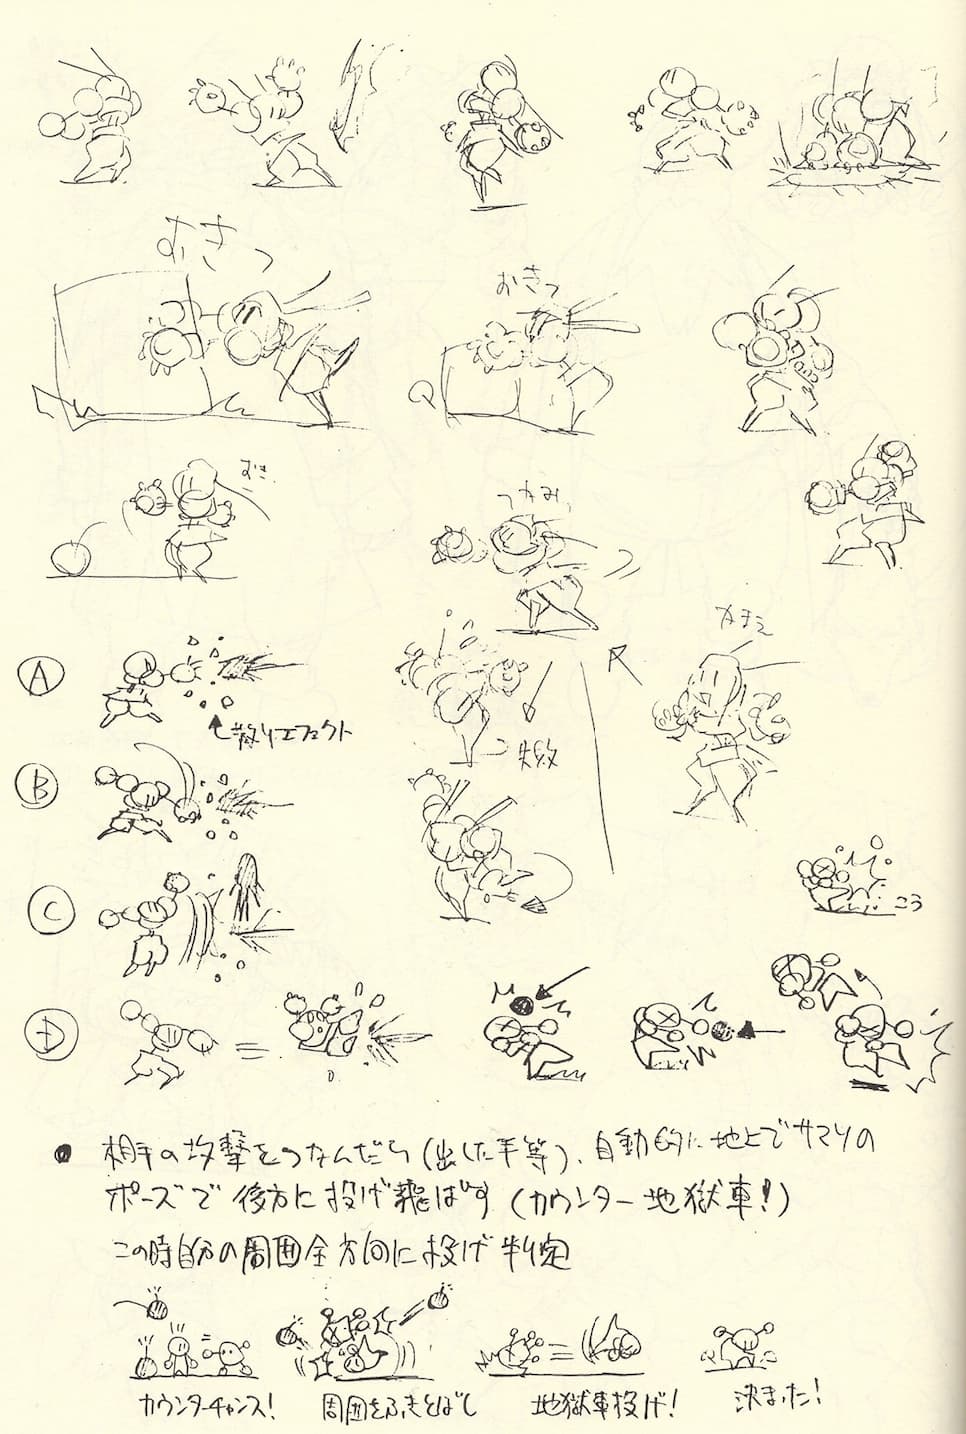 おきっ
おきっ
おき
つかみ
かまえ
A
散りエフェクト
失敗
B
C
ころ
D
● 相手の攻撃をつかんだら(出した手等)、自動的に地上でサマソの
ポーズで後方に投げ飛ばす(カウンター地獄車!)
この時自分の周囲全方向に投げ判定
カウンターチャンス!
周囲をふきとばし
地獄車投げ!
決まった!